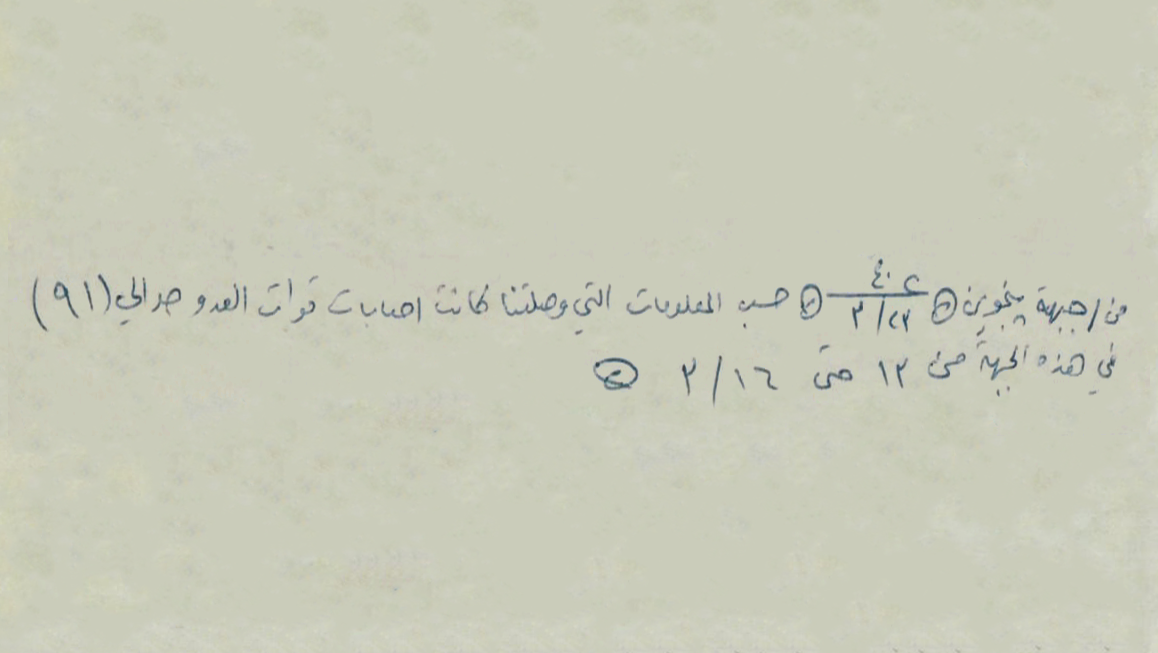 من / جبهة پنجوين ⊙ ٤٠٢ ٢٣/٣ ⊙ حسب المعلومات التي وصلتنا كانت اصابات قوات العدو حوالي (٩١)
في هذه الجبهة من ١٣ حتى ١٦/٣ ⊙